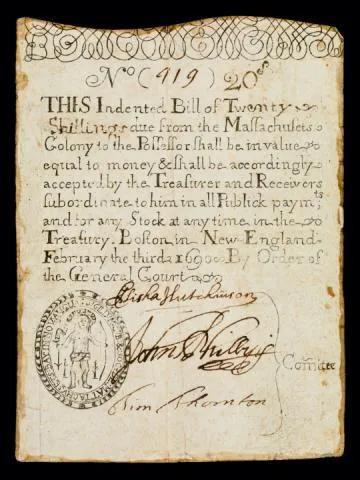 No (919) 20s
THIS Indented Bill of Twenty
Shillings due from the Massachusets
Colony to the Possessor shall be in value
equal to money & shall be accordingly
accepted by the Treasurer and Receivers
subordinate to him in all Publick paymts
and for any Stock at any time in the
Treasury. Boston in New-England
February the third 1690. By Order of
the General Court
Elisha Hutchinson
John Phillips
Comittee
Tim Thornton